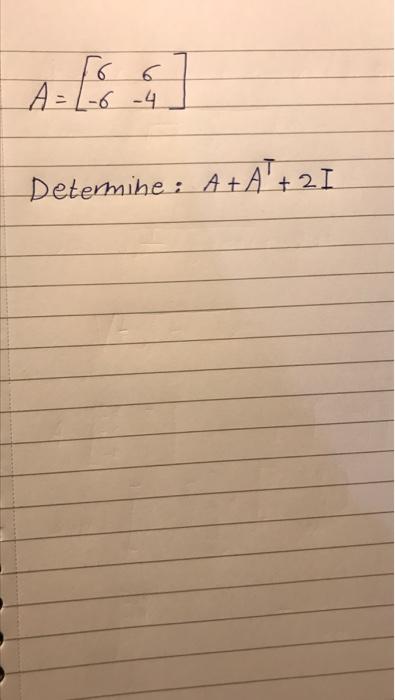 A = [6 6
-6 -4]
Determine : A + A^T + 2I